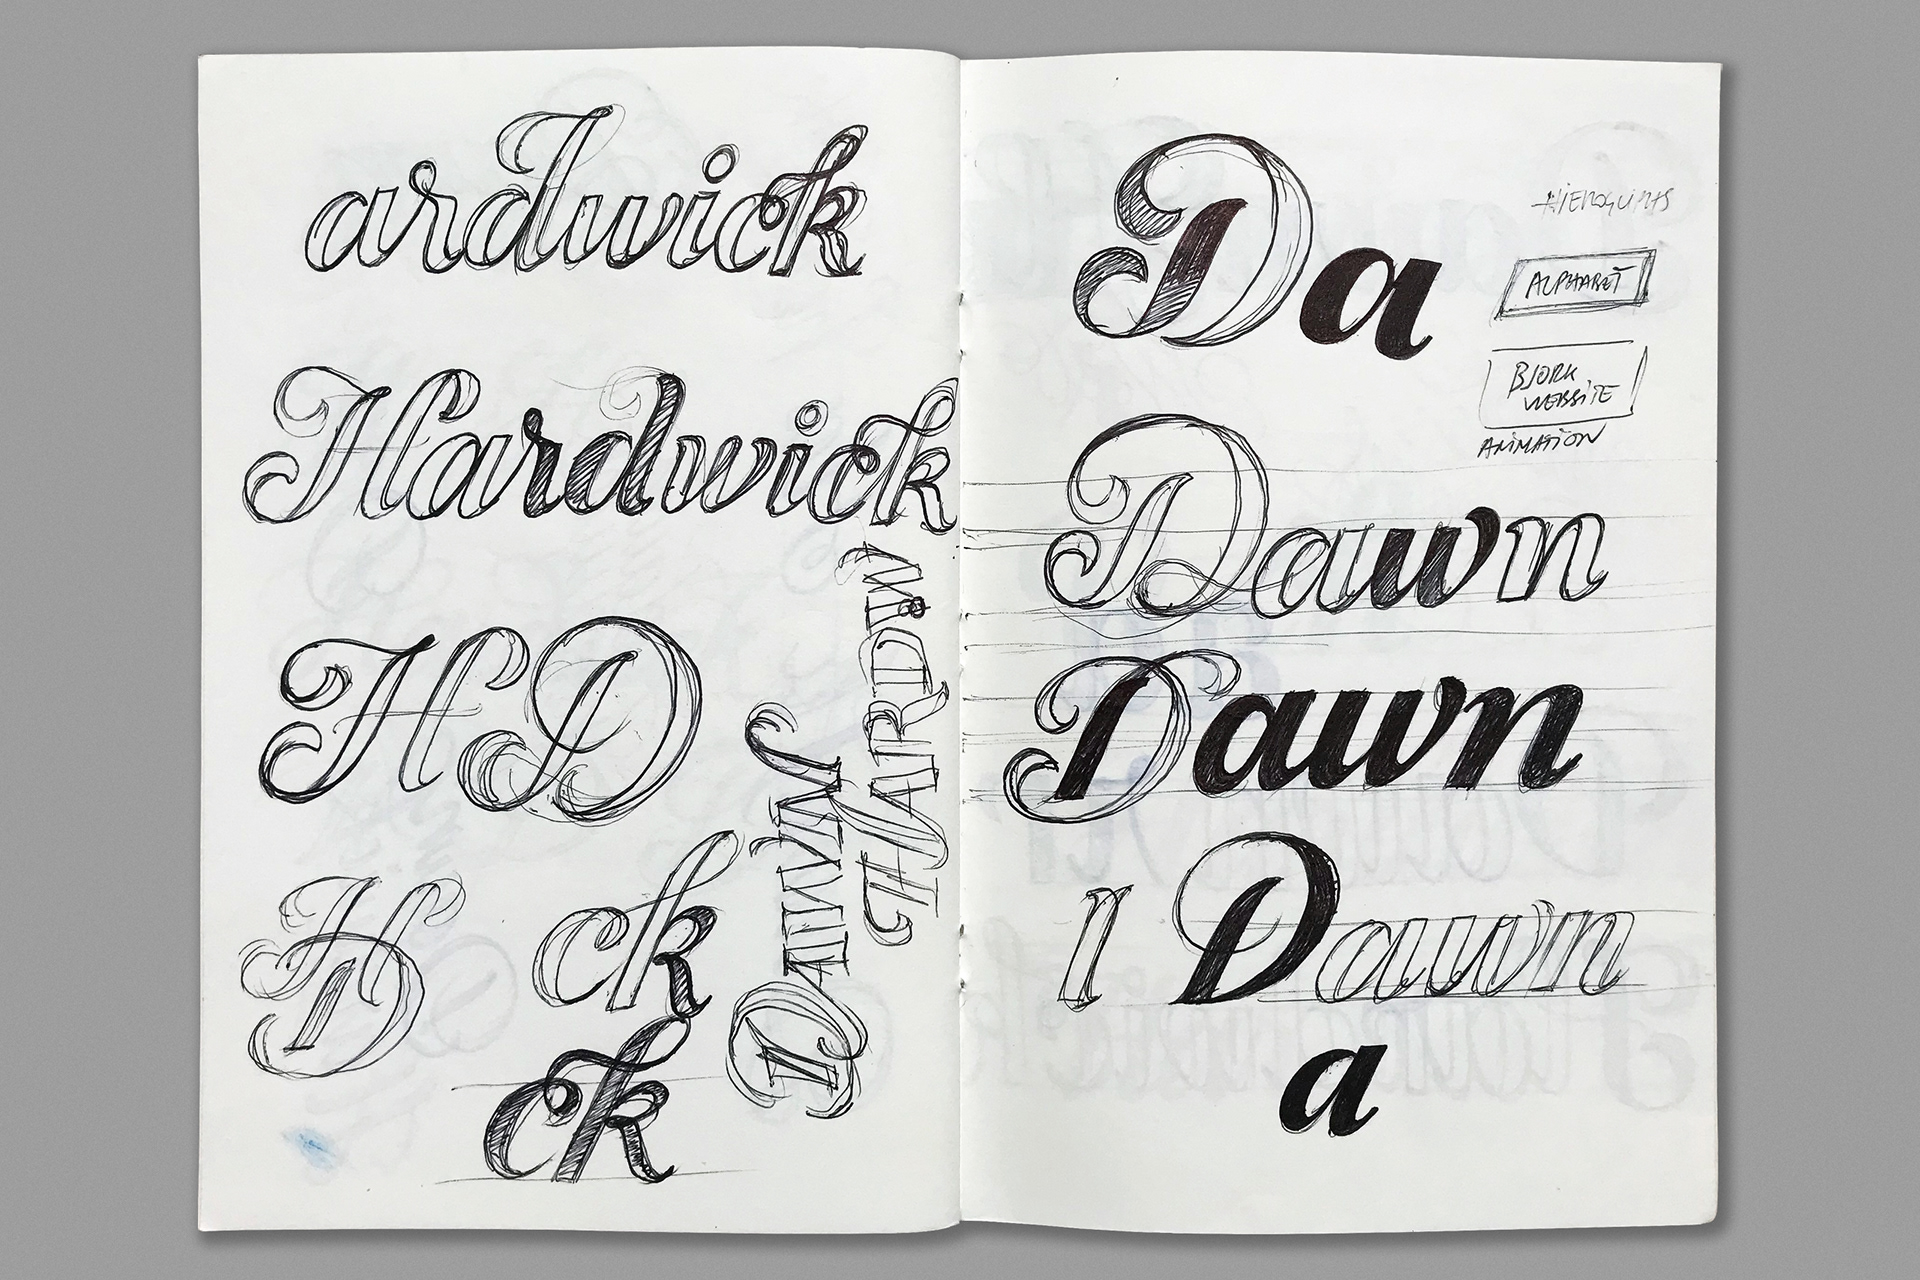 ardwick
Hardwick
H D
HARDW
DAWN
H D
ck
ck
Da
HIEROGLIPHS
ALPHABET
BJORK
WEBSITE
ANIMATION
Dawn
Dawn
I Dawn
a